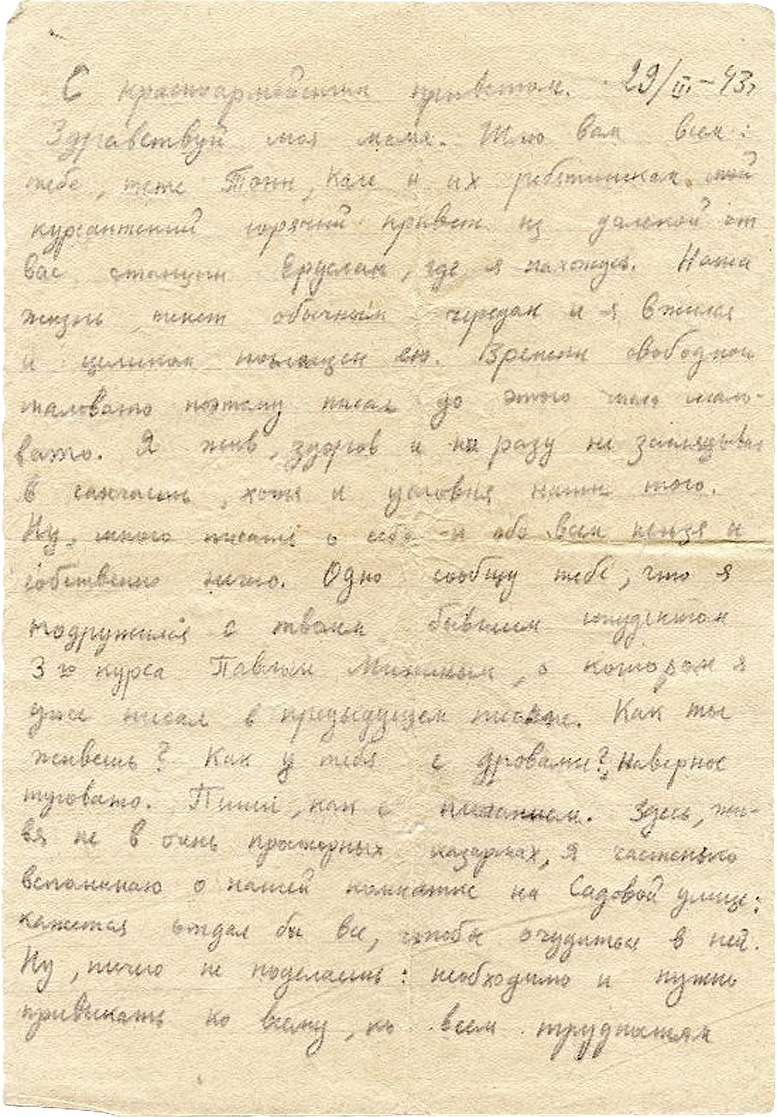 С красноармейским приветом. 29/III-43г
Здравствуй моя мама. Шлю вам всем:
тебе, тете Тоне, Кале и их ребятишкам мой
курсантский горячий привет из далекой от
вас станции Еруслан, где я нахожусь. Наша
жизнь течет обычным чередом и я вжился
и целиком поглощен ею. Времени свободного
маловато поэтому писал до этого мало-
вато. Я жив, здоров и ни разу не заглядывал
в санчасть, хотя и условия не того.
Ну, много писать о себе и обо всем нельзя и
собственно нечего. Одно сообщу тебе, что я
подружился с твоим бывшим студентом
3го курса Павлом, о котором я
уже писал в предыдущем письме. Как ты
живешь? Как у тебя с дровами? Наверное
туговато. Пиши, как с питанием. Здесь, жи-
вя не в очень просторных казармах, я частенько
вспоминаю о нашей комнатке на Садовой улице:
кажется отдал бы все, чтобы очудиться в ней.
Ну, ничего не поделаешь: необходимо и нужно
привыкать ко всему, ко всем трудностям